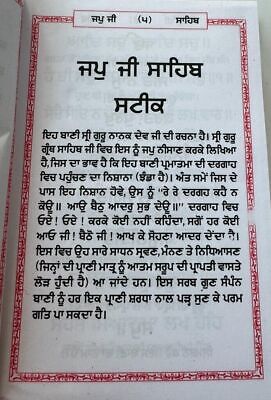 ਜਪੁ ਜੀ (੫) ਸਾਹਿਬ
ਜਪੁ ਜੀ ਸਾਹਿਬ
ਸਟੀਕ
ਇਹ ਬਾਣੀ ਸ੍ਰੀ ਗੁਰੂ ਨਾਨਕ ਦੇਵ ਜੀ ਦੀ ਰਚਨਾ ਹੈ। ਸ੍ਰੀ ਗੁਰੂ
ਗ੍ਰੰਥ ਸਾਹਿਬ ਜੀ ਵਿਚ ਇਸ ਨੂੰ ਜਪੁ ਨੀਸਾਣ ਕਰਕੇ ਲਿਖਿਆ
ਹੈ, ਜਿਸ ਦਾ ਭਾਵ ਹੈ ਕਿ ਇਹ ਬਾਣੀ ਪ੍ਰਮਾਤਮਾ ਦੀ ਦਰਗਾਹ
ਵਿਚ ਪਹੁੰਚਣ ਦਾ ਨਿਸ਼ਾਨਾ (ਝੰਡਾ ਹੈ)। ਅੰਤ ਸਮੇਂ ਜਿਸ ਦੇ
ਪਾਸ ਇਹ ਨਿਸ਼ਾਨ ਹੋਵੇ, ਉਸ ਨੂੰ "ਰੇ ਰੇ ਦਰਗਹ ਕਹੈ ਨ
ਕੋਊ॥ ਆਉ ਬੈਠੁ ਆਦਰੁ ਸੁਭ ਦੇਊ॥" ਦਰਗਾਹ ਵਿਚ
ਓਏ! ਓਏ! ਕਰਕੇ ਕੋਈ ਨਹੀਂ ਕਹਿੰਦਾ, ਸਗੋਂ ਹਰ ਕੋਈ
ਆਓ ਜੀ! ਬੈਠੋ ਜੀ! ਆਖ ਕੇ ਸੋਹਣਾ ਆਦਰ ਦੇਂਦਾ ਹੈ।
ਇਸ ਵਿਚ ਉਹ ਸਾਰੇ ਸਾਧਨ ਸੂਵਣ, ਮੰਨਣ ਤੇ ਨਿਧਿਆਸਣ
(ਜਿਨ੍ਹਾਂ ਦੀ ਪ੍ਰਾਣੀ ਮਾਤ੍ਰ ਨੂੰ ਆਤਮ ਸਰੂਪ ਦੀ ਪ੍ਰਾਪਤੀ ਵਾਸਤੇ
ਲੋੜ ਹੁੰਦੀ ਹੈ) ਆ ਜਾਂਦੇ ਹਨ। ਇਸ ਸਰਬ ਗੁਣ ਸੰਪੰਨ
ਬਾਣੀ ਨੂੰ ਹਰ ਇਕ ਪ੍ਰਾਣੀ ਸ਼ਰਧਾ ਨਾਲ ਪੜ੍ਹ ਸੁਣ ਕੇ ਪਰਮ
ਗਤਿ ਪਾ ਸਕਦਾ ਹੈ।